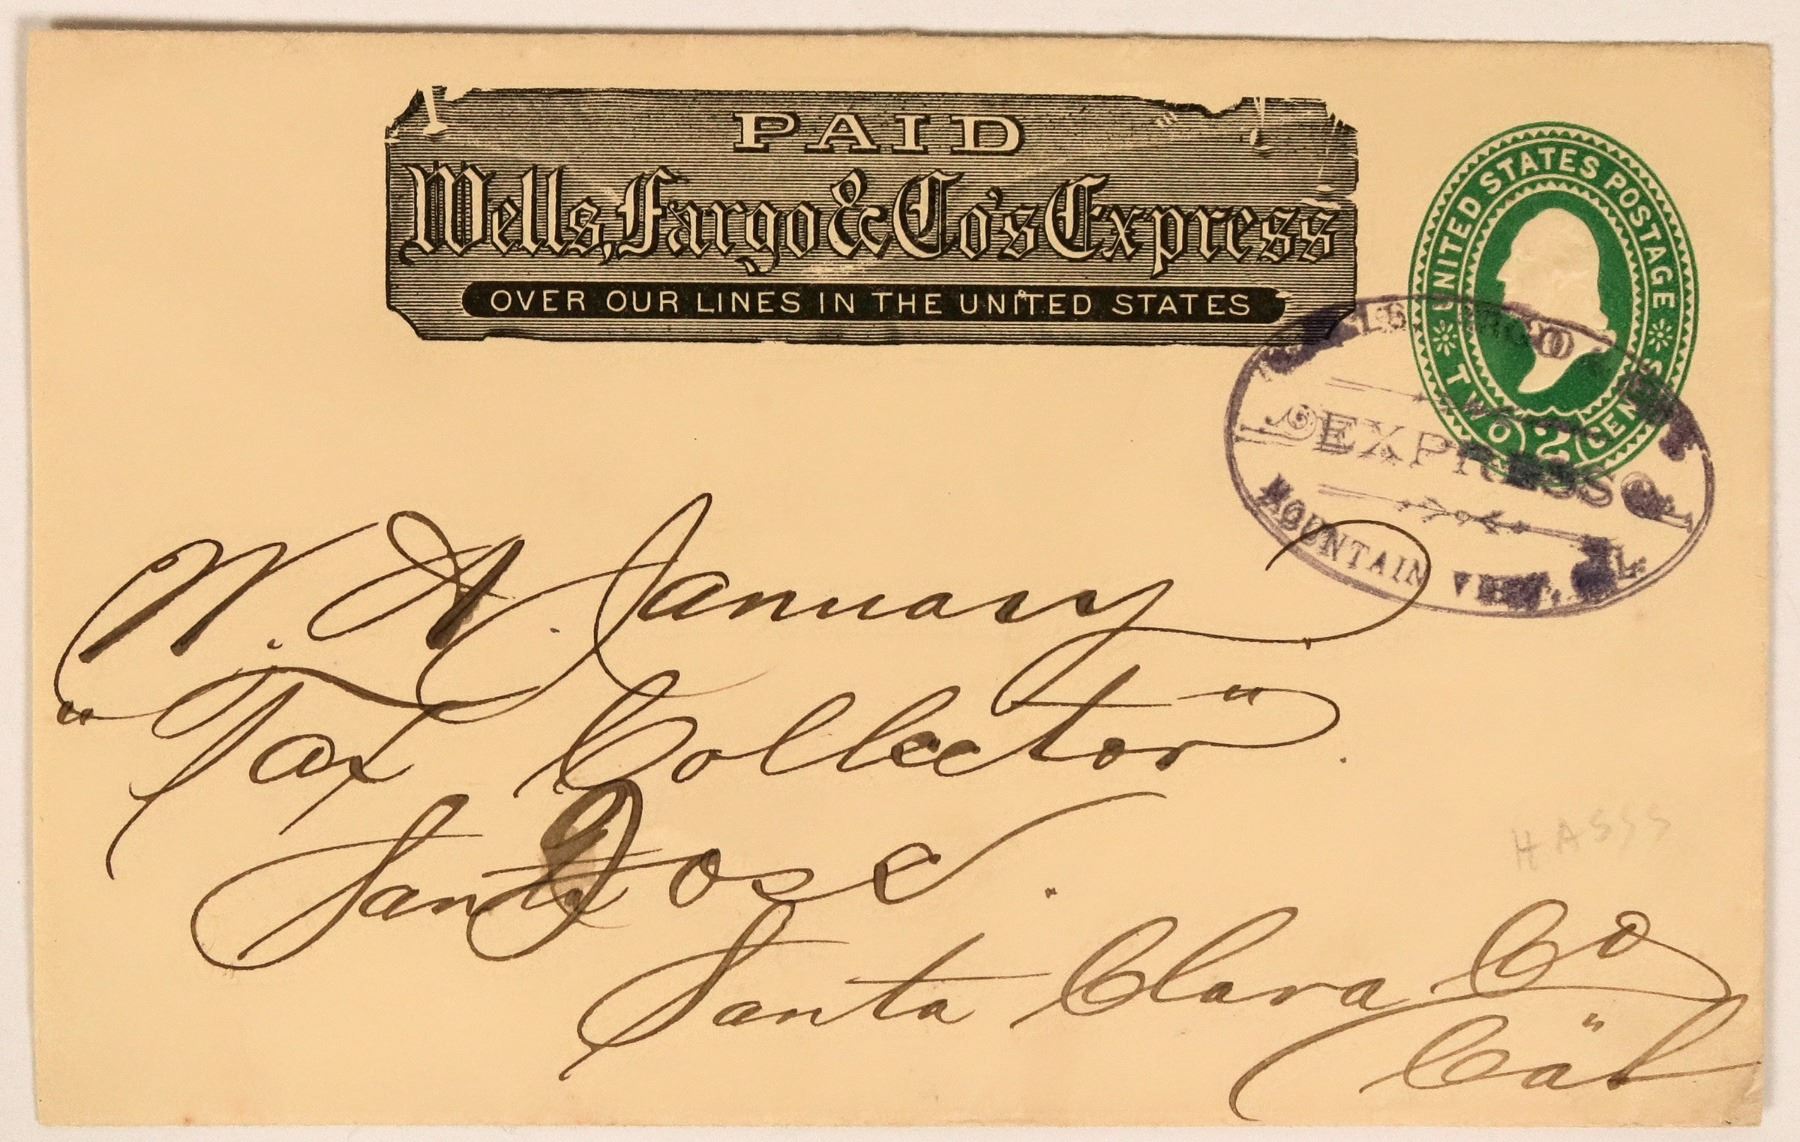 PAID
Wells, Fargo & Co's Express
OVER OUR LINES IN THE UNITED STATES
UNITED STATES POSTAGE
TWO 2 CENTS
WELLS FARGO &
EXPRESS
MOUNTAIN VIEW, CAL.
W. A. January
"Tax Collector".
San Jose.
Santa Clara Co
"Cal
HASSS